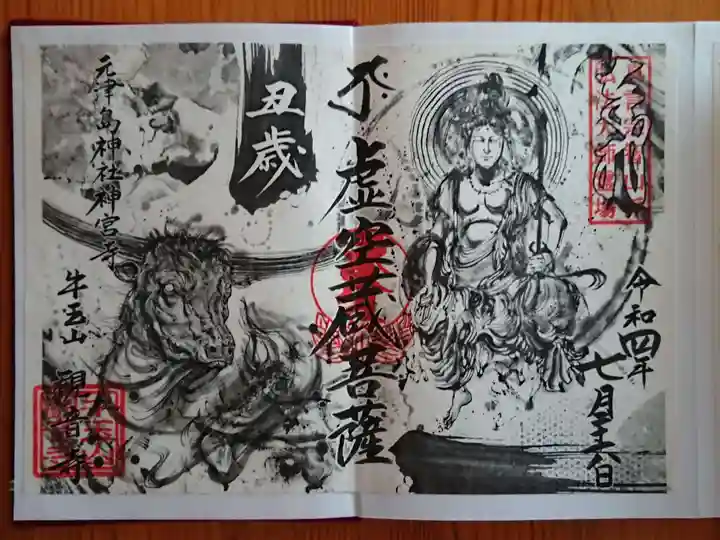 令和四年
七月二十六日
虚空蔵菩薩
丑歳
元津島神社神宮寺
牛玉山
観音寺